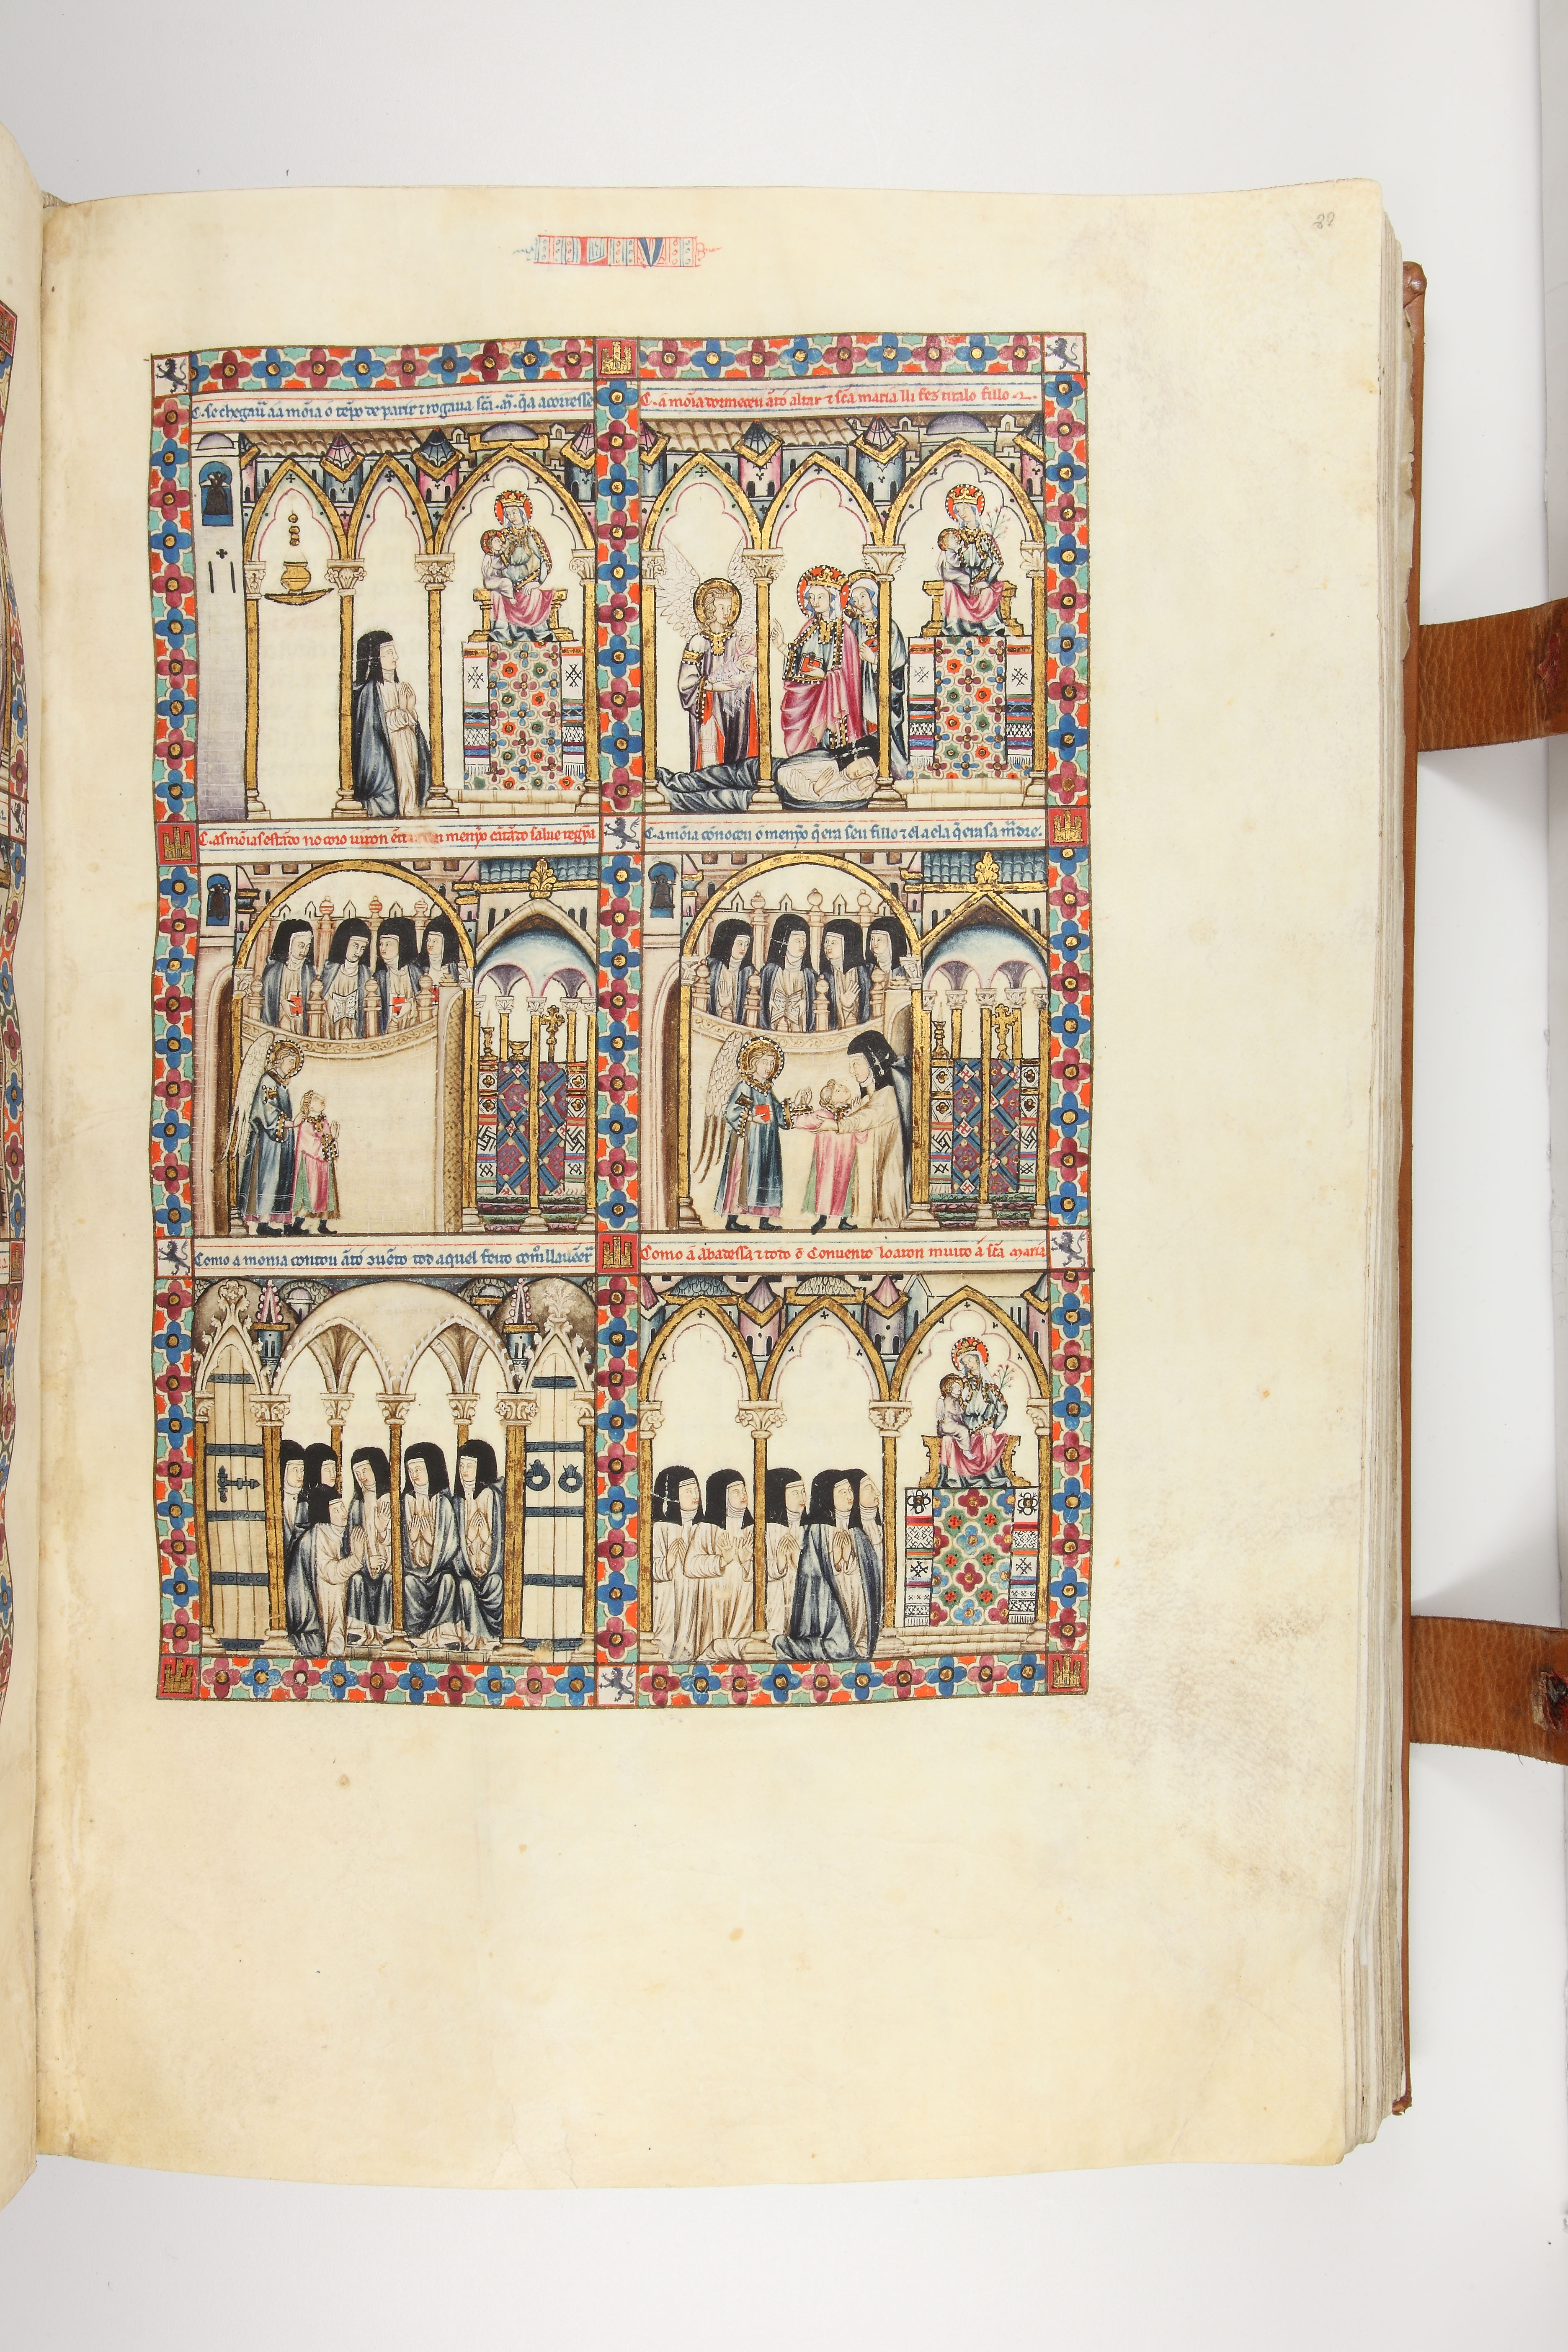 LV
C. se chegaũ aá mõia o tẽpo de parir ⁊ rogaua sc̃a .m̃. q̃ a acorresse
C. a mõia dormeceu ãte o altar ⁊ sc̃a maria lli fez tiralo fillo
C. as mõias estãdo no coro uiron ẽtr menỹo cãtãdo salue regỹa
C. a mõia cõnoceu o menỹo q̃ era seu fillo ⁊ el a ela q̃ era sa madre.
Como a monia contou ãto cõuẽto tod aquel feito com̃ ll auẽer
Como a abadessa ⁊ todo o Conuento loaron muito a sc̃a maria